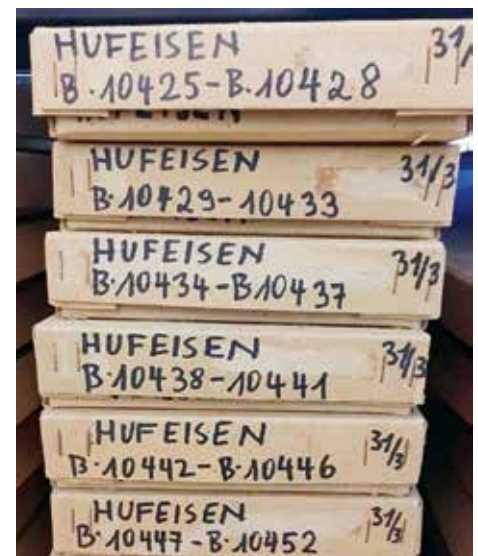 HUFEISEN 31/
B.10425-B.10428
HUFEISEN 31/3
B.10429-10433
HUFEISEN 31/3
B.10434-B.10437
HUFEISEN 31/3
B.10438-10441
HUFEISEN 31/3
B.10442-B.10446
HUFEISEN 31/3
B.10447-B.10452